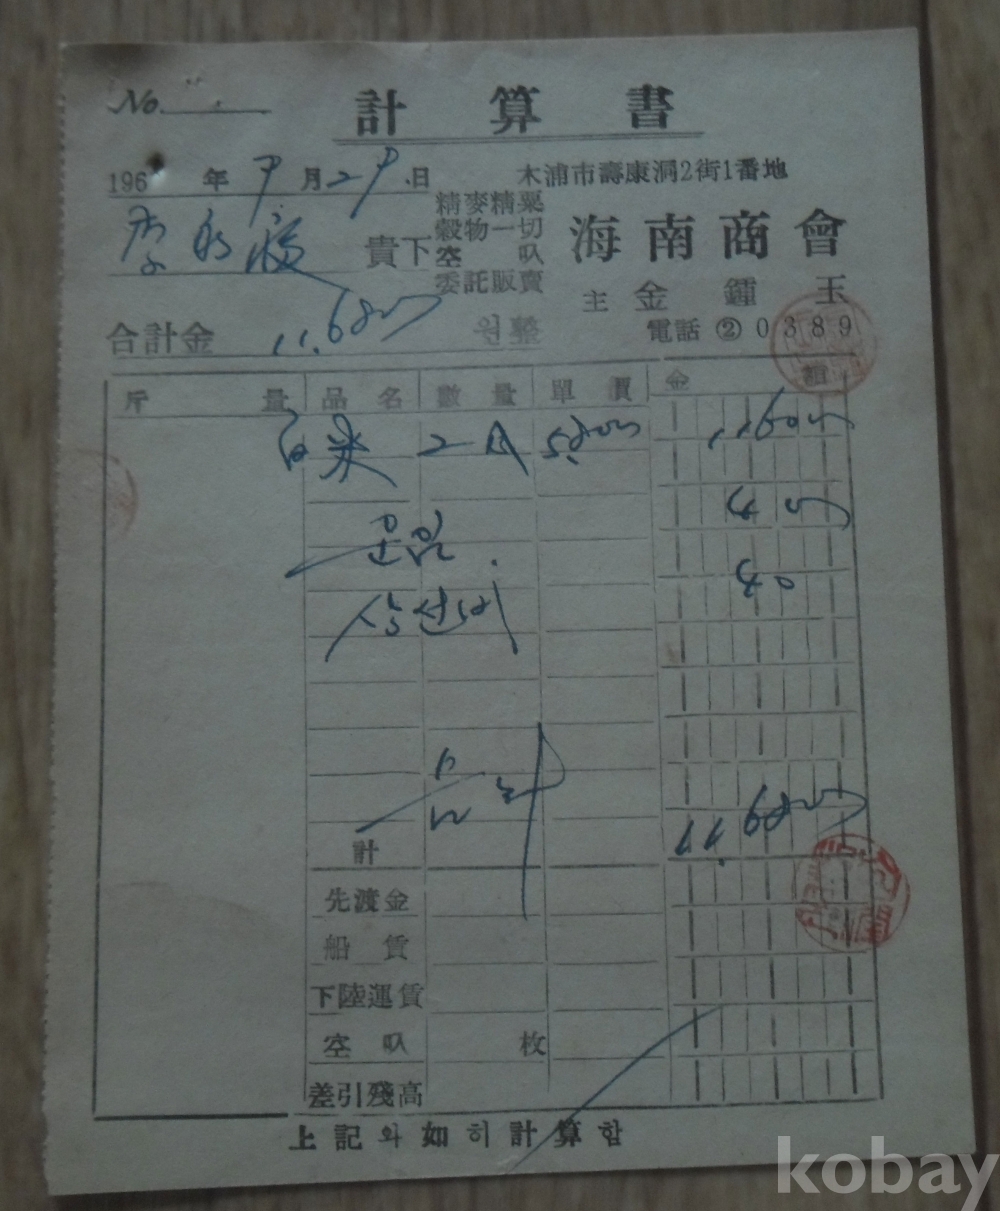 No.
計算書
196 年 9月29日
木浦市壽康洞2街1番地
精麥精粟
穀物一切
空 叺
委託販賣
海南商會
主 金鍾玉
電話 ② 0389
李 貴下
合計金 11,680 원整
斤量 品名 數量 單價 金額
白米 2叺 5,800 11,600
운임 40
상선비 40
計 11,680
先渡金
船賃
下陸運賃
空叺 枚
差引殘高
上記와如히計算함
kobay